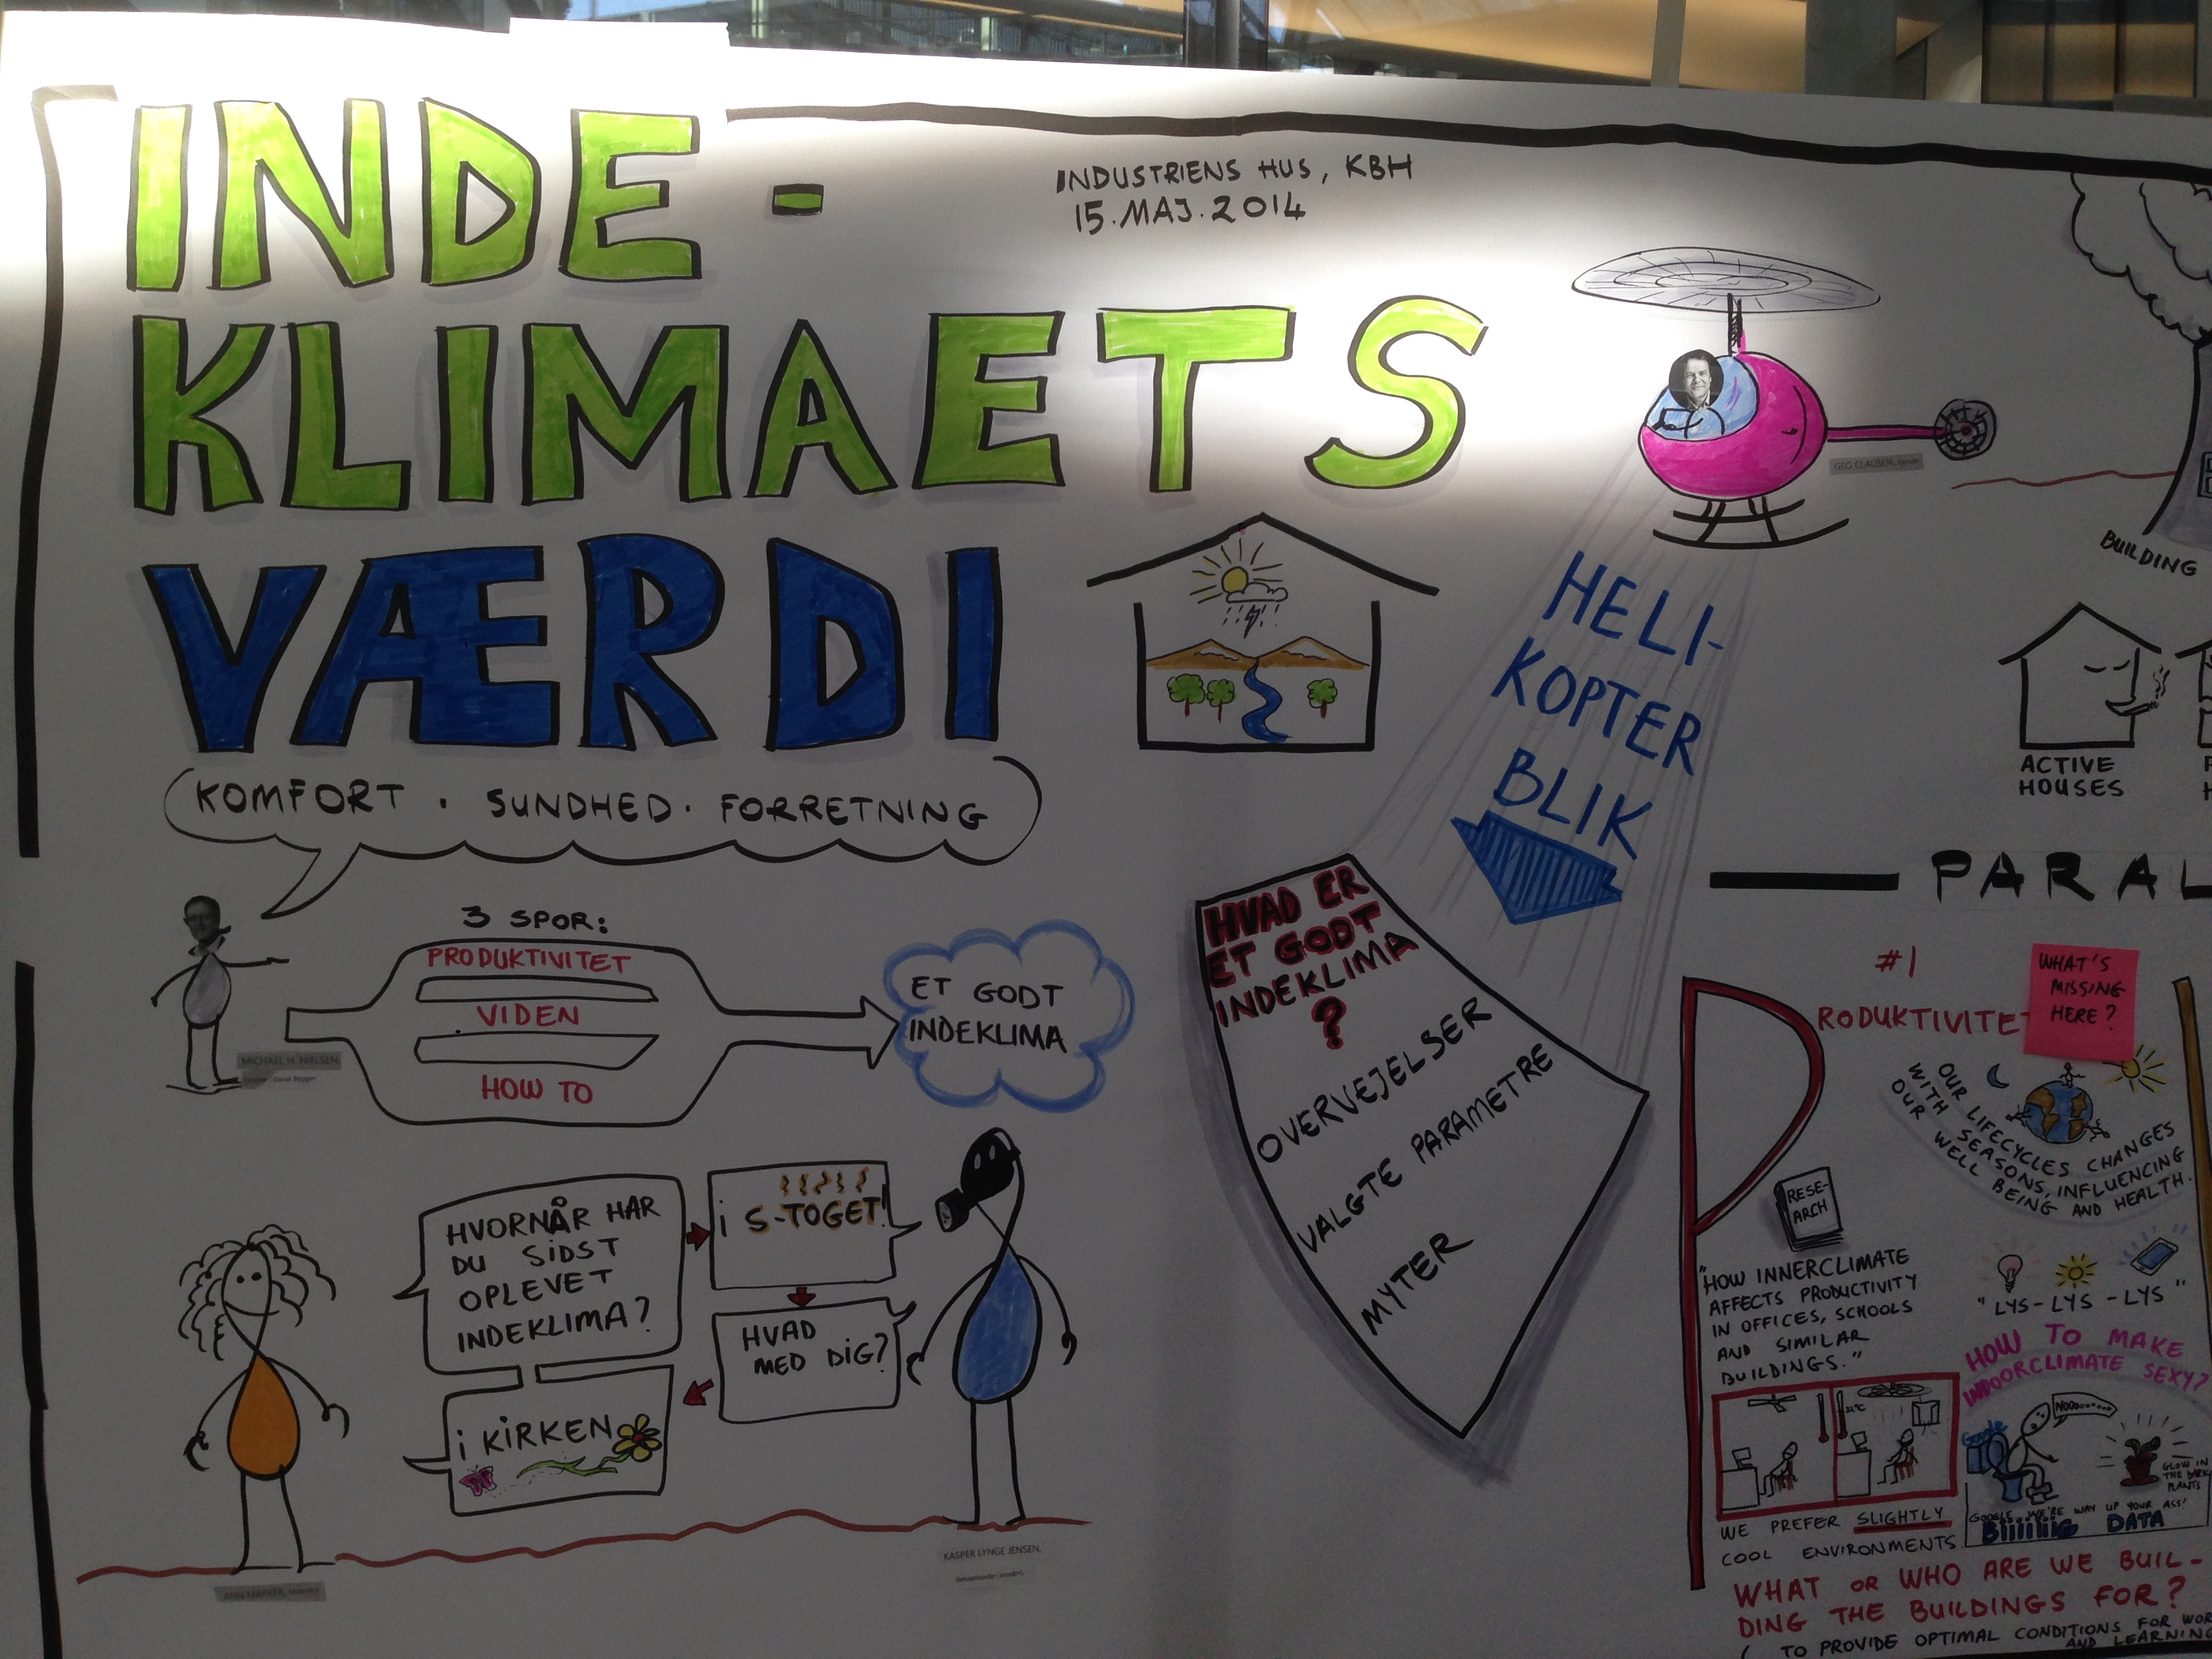 INDE-
KLIMAETS
VÆRDI
INDUSTRIENS HUS, KBH
15.MAJ.2014
KOMFORT . SUNDHED. FORRETNING
MICHAEL H. NIELSEN,
3 SPOR:
PRODUKTIVITET
VIDEN
HOW TO
ET GODT
INDEKLIMA
HVORNÅR HAR
DU SIDST
OPLEVET
INDEKLIMA?
i S-TOGET!
HVAD
MED DIG?
i KIRKEN
ANN MARKER,
KASPER LYNGE JENSEN,
GEO CLAUSEN,
HELI-
KOPTER
BLIK
HVAD ER
ET GODT
INDEKLIMA
?
OVERVEJELSER
VALGTE PARAMETRE
MYTER
BUILDING
ACTIVE
HOUSES
PARAL
#1
PRODUKTIVITET
WHAT'S
MISSING
HERE?
OUR LIFECYCLES CHANGES
WITH SEASONS, INFLUENCING
OUR WELL BEING AND HEALTH.
RESE-
ARCH
"HOW INNERCLIMATE
AFFECTS PRODUCTIVITY
IN OFFICES, SCHOOLS
AND SIMILAR
BUILDINGS."
"LYS-LYS-LYS"
HOW TO MAKE
INDOORCLIMATE SEXY?
Google
GLOW IN
THE DARK
PLANTS
GOOGLE WE'RE WAY UP YOUR ASS!
DATA
WE PREFER SLIGHTLY
COOL ENVIRONMENTS
WHAT OR WHO ARE WE BUIL-
DING THE BUILDINGS FOR?
TO PROVIDE OPTIMAL CONDITIONS FOR WOR
AND LEARNING